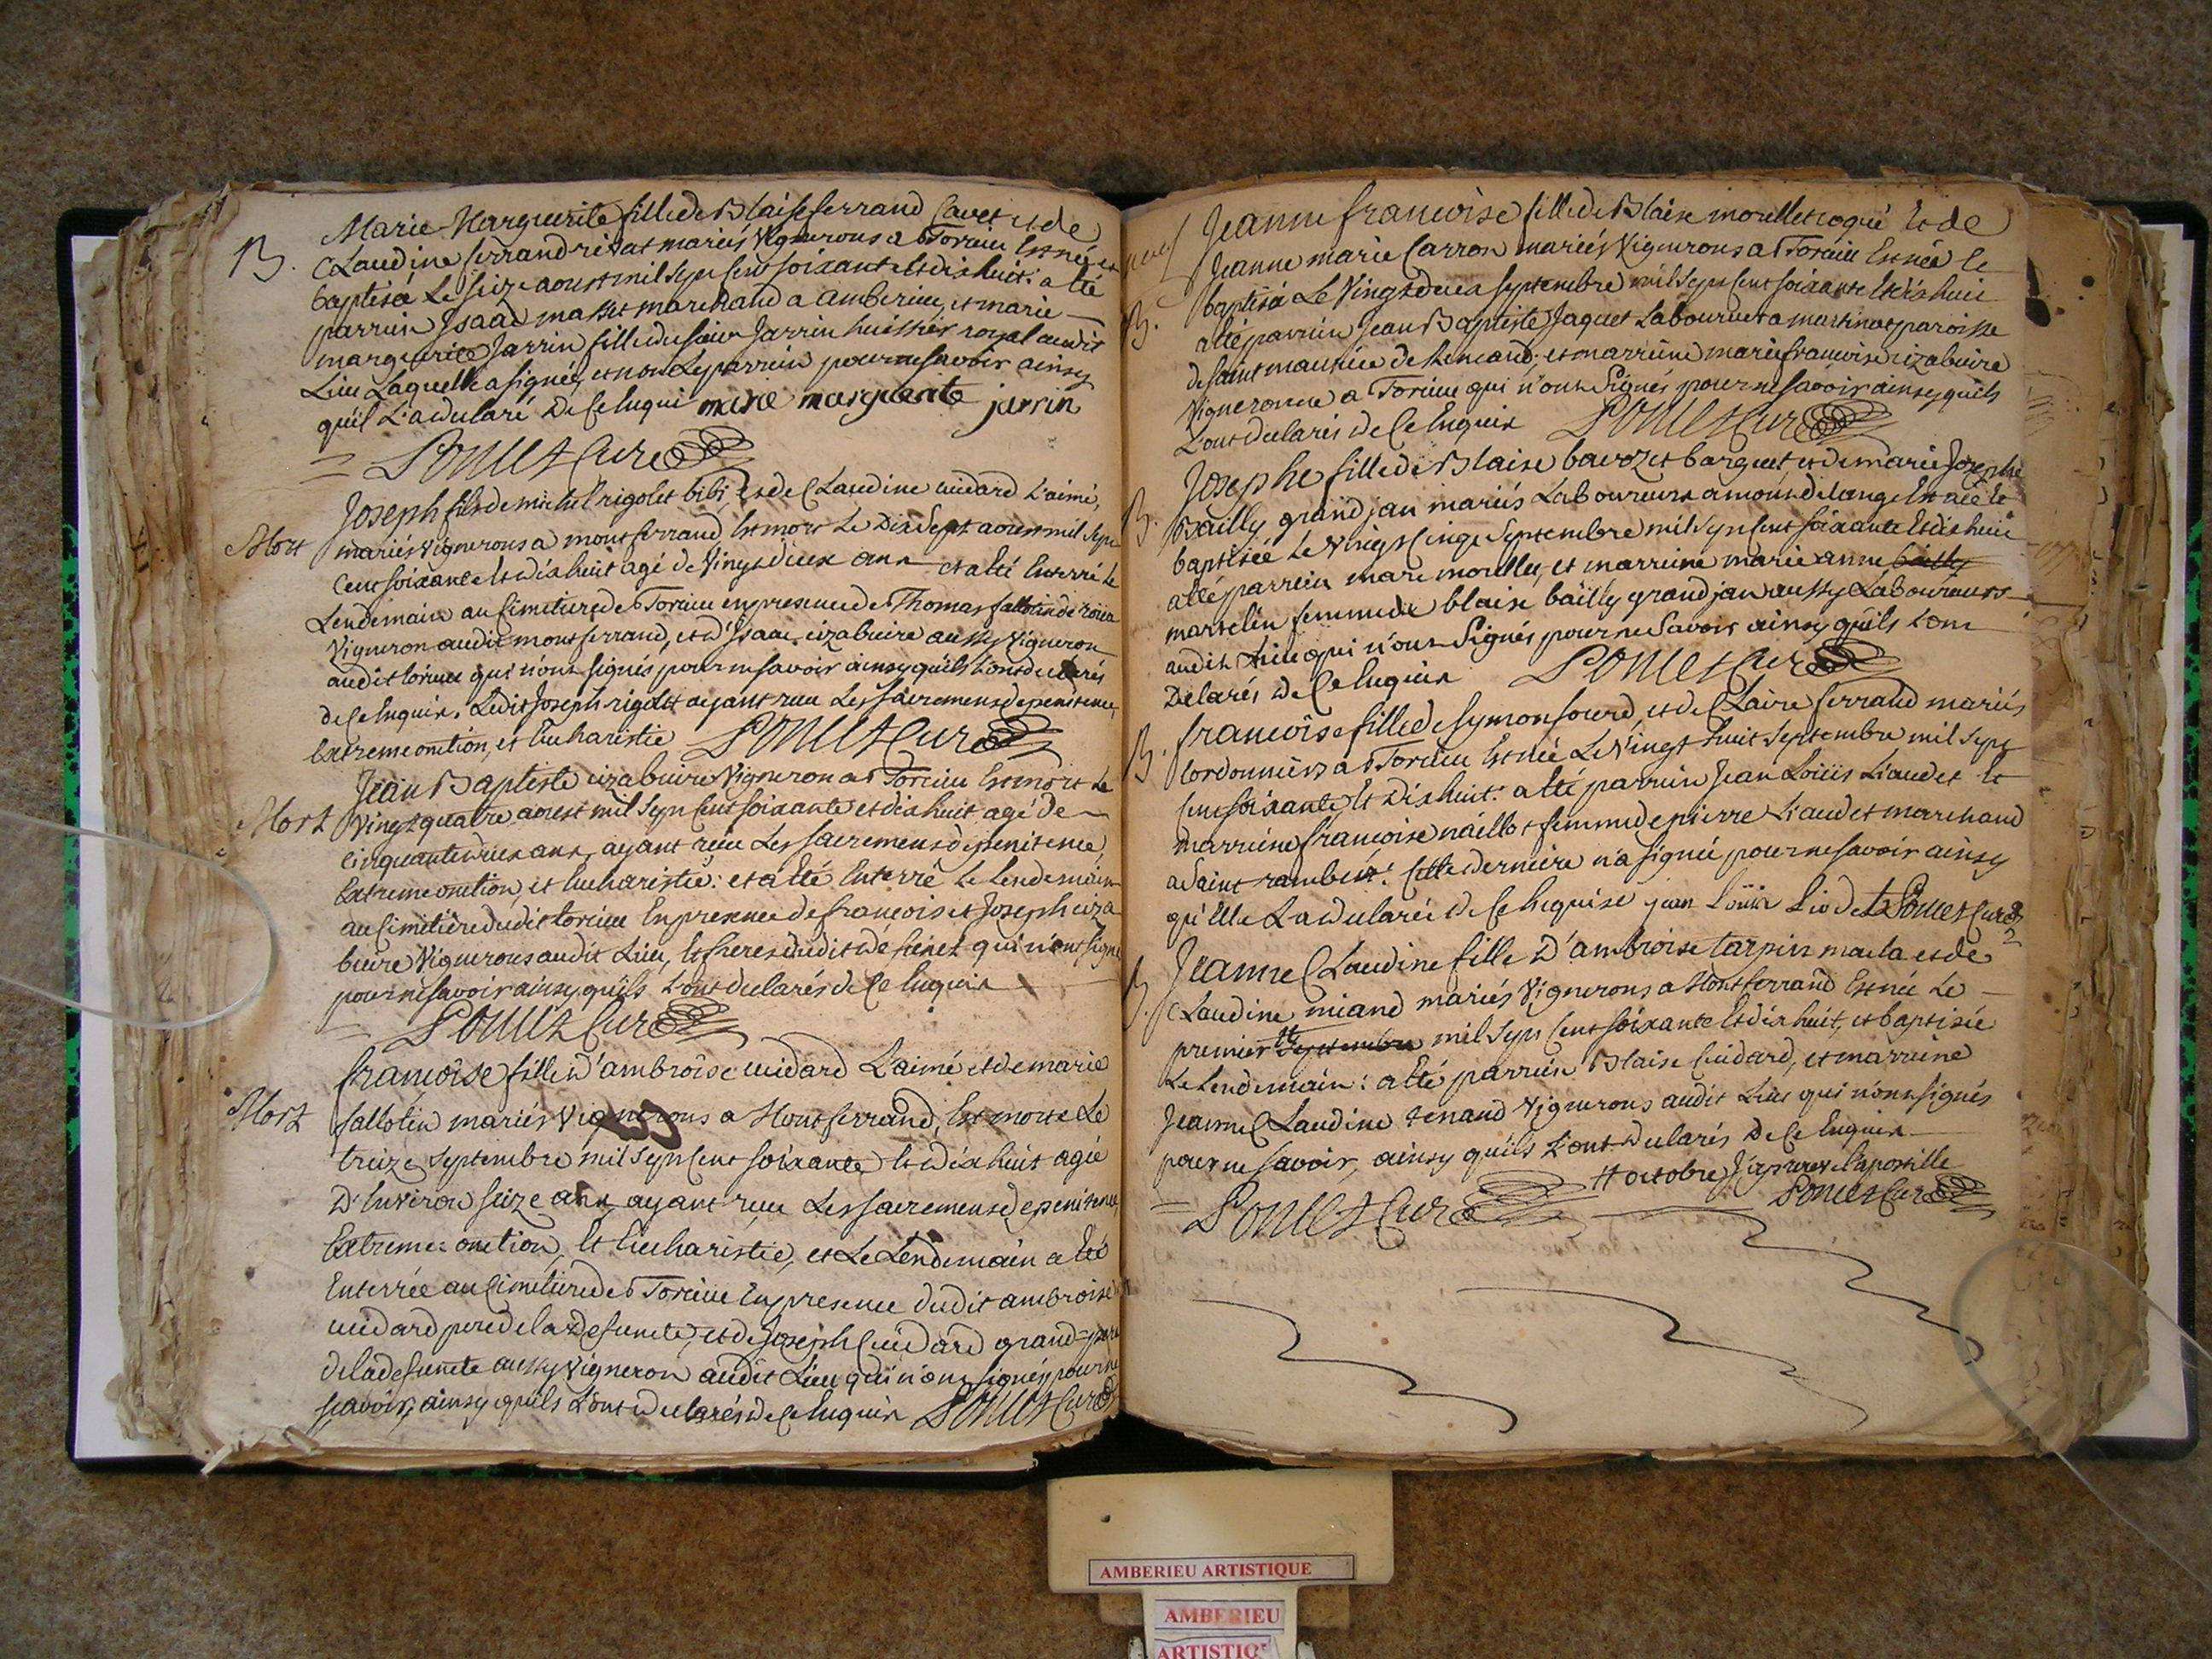 B. Marie Marguerite fille de Blaise ferrand Cavet et de
Claudine ferrand rivat mariés Vignerons a Torcieu Est née et
baptisée Le seize aoust mil sept cent soixante et dix huit: a été
parrein Isaac massit marchand a amberieu, et marie
marguerite Jarrin fille du sieur Jarrin huissier royal audit
Lieu Laquelle a signée, et non Le parrein pour ne savoir ainsy
qu'il L'a declaré de Ce Enquis marie marguerite jarrin
Poncet Curé
Joseph fils de michel rigolet bibi, et de Claudine cuidard L'aimé,
Mort mariés Vignerons a montferrand, Est mort Le Dix Sept aoust mil sept
Cent soixante Et dix huit agé de Vingt deux ans et a été Enterré le
Lendemain au Cimetiere de Torcieu en presence de Thomas fallotin de
Vigneron audit montferrand, et d'Isaac cizabuire aussy Vigneron
audit torcieu qui n'ont signés pour ne savoir ainsy qu'ils L'ont declarés
de Ce Enquis. Ledit Joseph rigolet ayant reçu Les sacremens de penitence,
Extreme onction, et Eucharistie Poncet Curé
Jean Baptiste cizabuire Vigneron a Torcieu Est mort Le
Mort Vingt quatre aoust mil sept Cent soixante et dix huit agé de
cinquante deux ans, ayant reçu Les sacremens de penitence
Extreme onction, et Eucharistie: et a été Enterré le Lendemain
au Cimetiere dudit torcieu En presence de francois et Joseph ciza
buire Vignerons audit Lieu, Et freres dudit défunct qui n'ont signé
pour ne savoir ainsy qu'ils L'ont declarés de Ce Enquis
Poncet Curé
francoise fille d'ambroise cuidard L'aimé et de marie
Mort fallotin mariés Vignerons a Montferrand, Est morte Le
treize septembre mil sept Cent soixante Et dix huit agée
D'Environ seize ans, ayant reçu Les sacremens de penitence,
Extreme onction, Et Eucharistie, et Le Lendemain a Eté
Enterrée au Cimetiere de Torcieu En presence dudit ambroise
cuidard pere de la defuncte, et de Joseph Cuidard grand-pere
de la defuncte aussy Vigneron audit Lieu qui n'ont signés pour ne
scavoir, ainsy qu'ils L'ont declarés de Ce Enquis Poncet Curé
Jeanne francoise fille de Blaise morellet coqué Et de
Jeanne marie Carron mariés Vignerons a Torcieu Est née Et
B. baptisée Le Vingt deux septembre mil sept Cent soixante Et dix huit
a été parrein Jean Baptiste Jaquet Laboureur a martinat paroisse
de saint maurice de Remend; et marreine marie francoise cizabuire
Vigneronne a Torcieu qui n'ont Signés pour ne savoir ainsy qu'ils
L'ont declarés de Ce Enquis Poncet Curé
Josephe fille de Blaise bavozet barquet et de marie Josephe
B. Bailly grand jan mariés Laboureurs a mont de lange Est née Et
baptisée Le Vingt Cinq Septembre mil sept Cent soixante Et dix huit
a été parrein marc morellet, et marreine marie anne bailly
marcelin femme de blaise bailly grand jan aussy Laboureurs
audit Lieu qui n'ont Signés pour ne Savoir ainsy qu'ils L'ont
Delarés de Ce Enquis Poncet Curé
francoise fille de Symon sourd, et de Claire ferrand mariés
B. Cordonniers a Torcieu Est née Le Vingt huit septembre mil sept
Cent soixante, Et Dix huit: a été parrein Jean Loüis Liaudet Et
marreine francoise naillot femme de pierre Liaudet marchand
a saint rambert: Cette derniere n'a signée pour ne savoir ainsy
qu'elle La declarée de Ce Enquise jean Louis Liodet Poncet Curé
Jeanne Claudine fille d'ambroise tarpin et de
B. Claudine miand mariés Vignerons a Montferrand Est née Le
premier septembre mil sept Cent soixante Et dix huit, et baptisée
Le Lendemain: a été parrein Blaise Cuidard, et marreine
Jeanne Claudine tenand Vignerons audit Lieu qui n'ont signés
pour ne savoir, ainsy qu'ils L'ont declarés de Ce Enquis
# octobre J'approuve l'apostille
Poncet Curé Poncet Curé
AMBERIEU ARTISTIQUE
AMBERIEU
ARTISTIQ